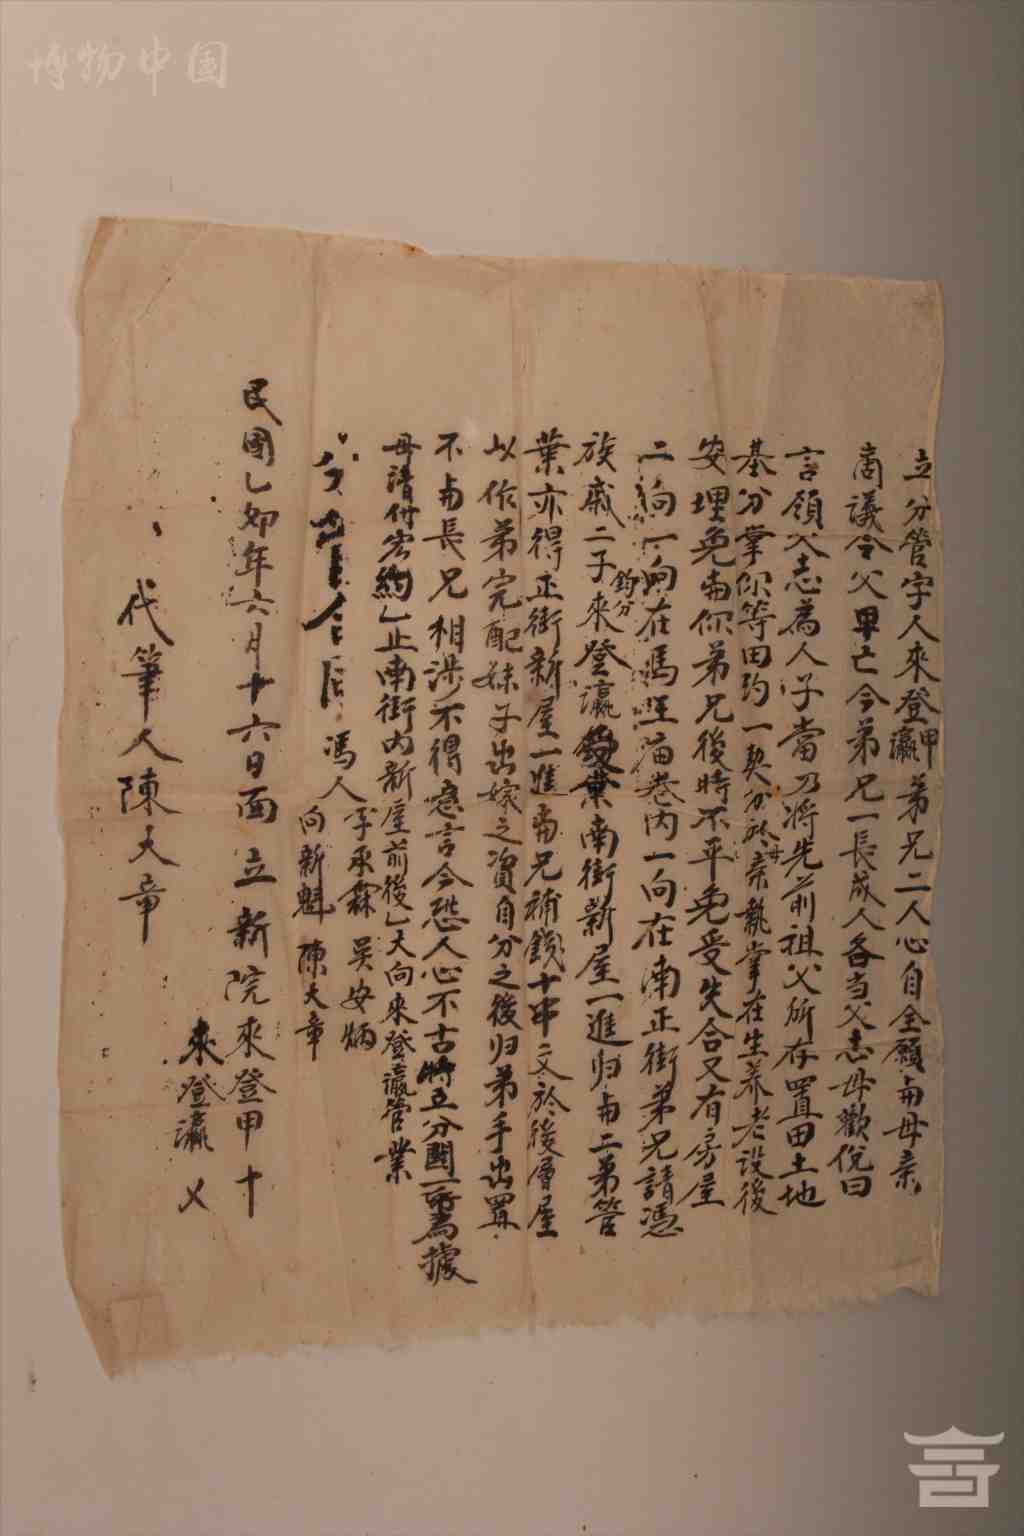 博物中国
立分管字人來登甲瀛弟兄二人心自全願與母亲
商議今父早亡今弟兄一長成人各当父志母歡悅曰
言領父志為人子當乃將先前祖父所存置田土地
基分掌你等田約一契分於亲母執掌在生养老設後
安埋免與你弟兄後時不平免受失合又有房屋
二向一向在馮家庙巷内一向在南正街弟兄請憑
族戚二子來登瀛鈞分業南街新屋一進归與二弟管
業亦得正街新屋一進與兄補錢十串文於後層屋
以作弟完配妹子出嫁之資自分之後归弟手出置
不與長兄相涉不得意言今恐人心不古特立分関一所為據
母清付老約上止南街内新屋前後上大向來登瀛管業
馮人李承霖 吴安炳
向新魁 陳大章
民國乙卯年六月十六日面立新院來登甲十
來登瀛 乂
代筆人陳大章